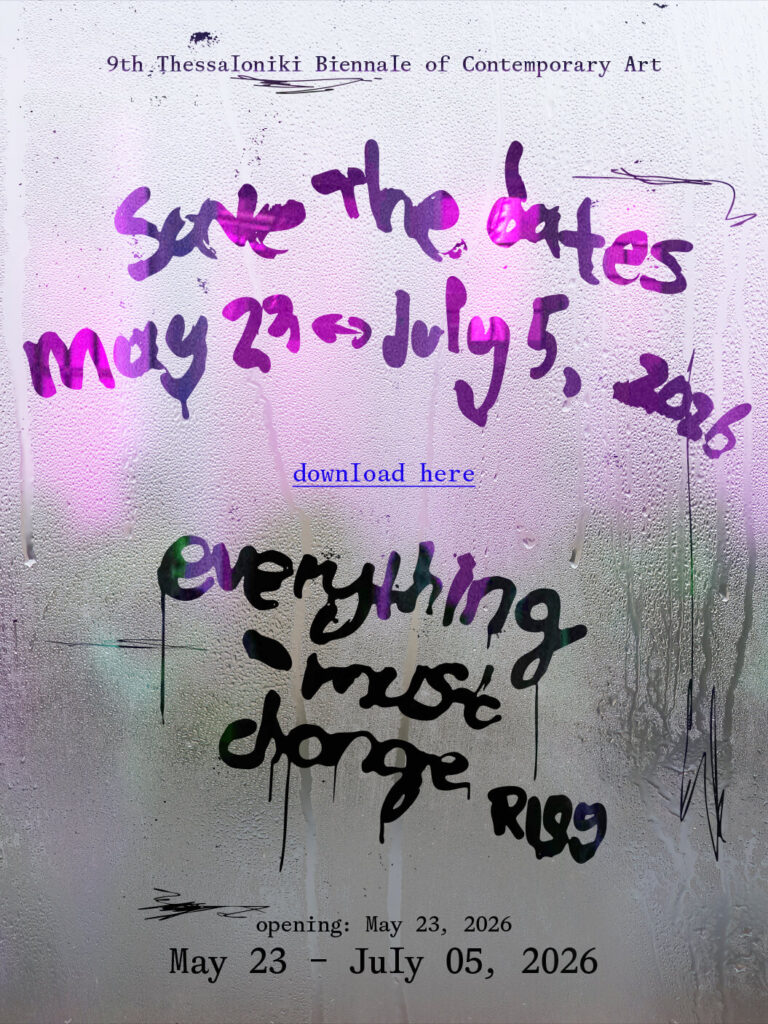 9th Thessaloniki Biennale of Contemporary Art
save the dates
may 23 ↔ july 5, 2026
download here
everything
must
change
opening: May 23, 2026
May 23 – July 05, 2026